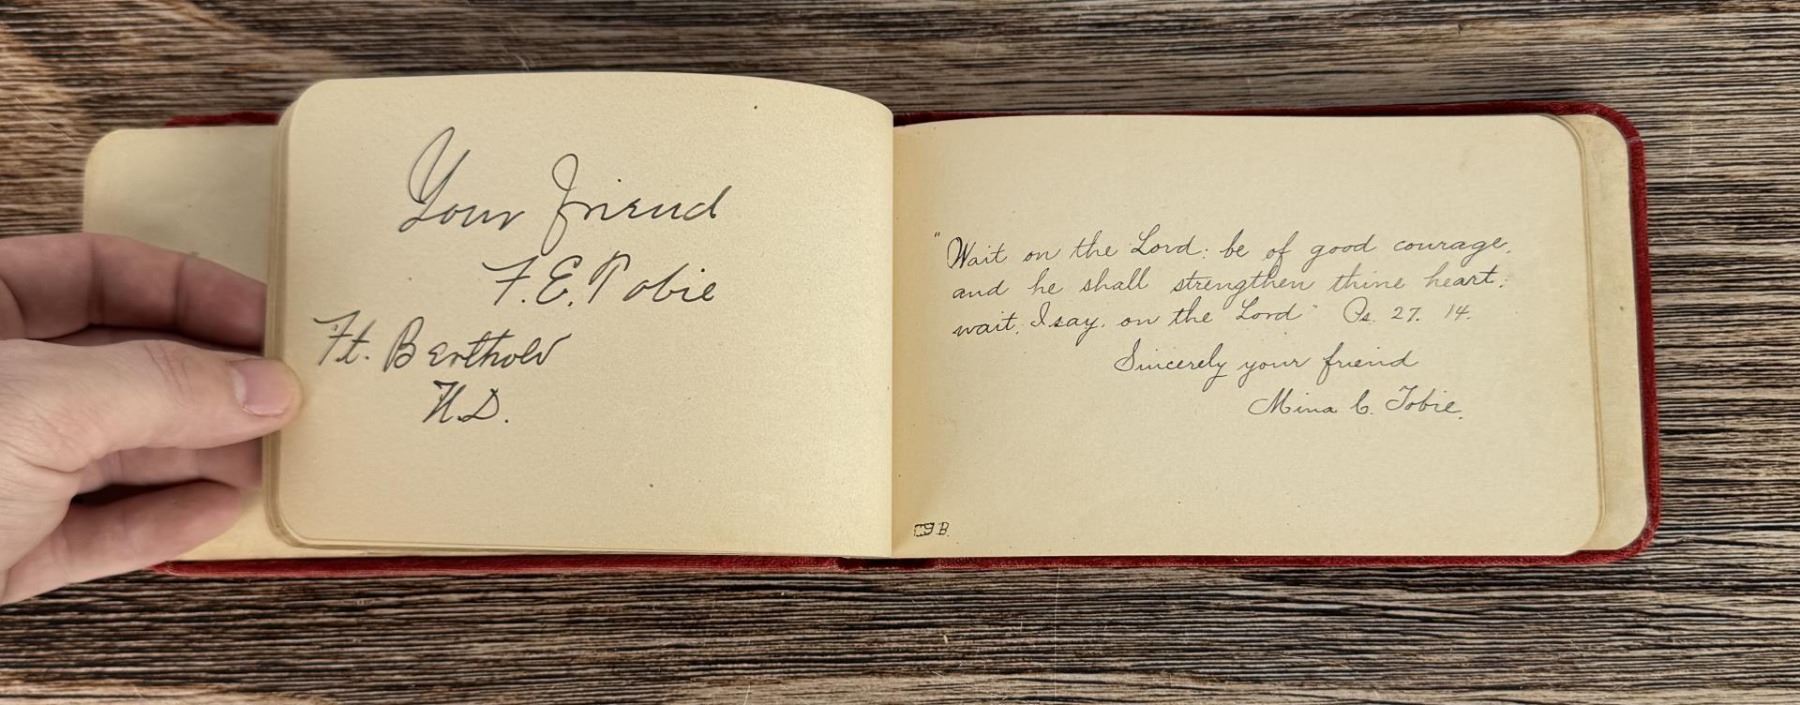 Your friend
F. E. Tobie
Ft. Berthold
N.D.
"Wait on the Lord: be of good courage,
and he shall strengthen thine heart:
wait, I say, on the Lord" Ps. 27. 14.
Sincerely your friend
Mina C. Tobie.
B